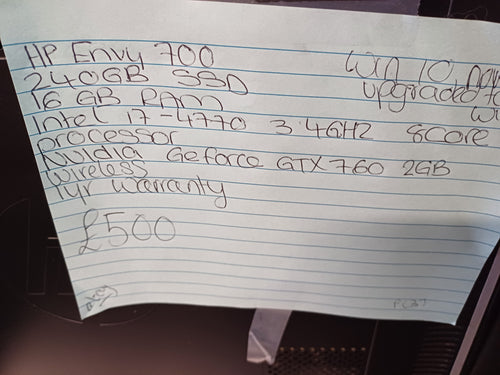 HP Envy 700
240GB SSD
16 GB RAM
Intel i7-4770 3.4GHZ 8core
processor
Nvidia Geforce GTX 760 2GB
wireless
1yr warranty
£500
Win 10 
upgraded to